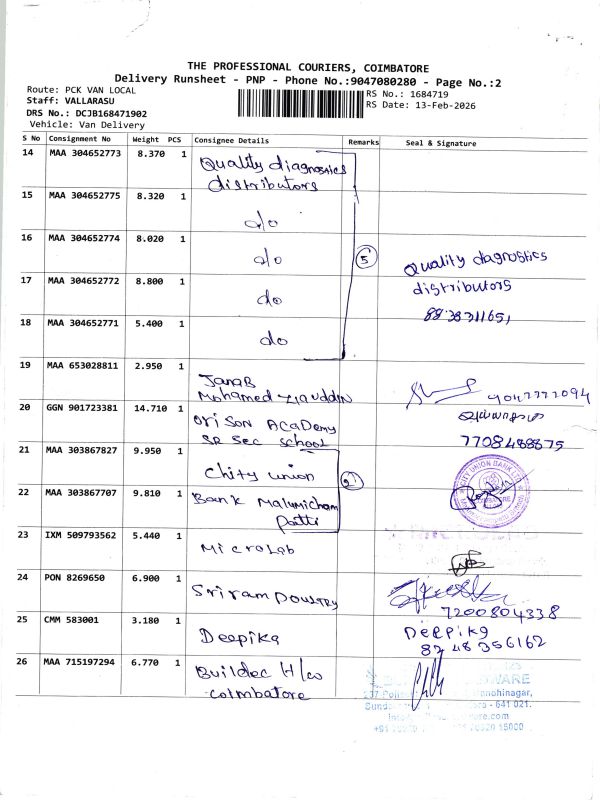 THE PROFESSIONAL COURIERS, COIMBATORE
Delivery Runsheet - PNP - Phone No.:9047080280 - Page No.:2
Route: PCK VAN LOCAL
RS No.: 1684719
Staff: VALLARASU
RS Date: 13-Feb-2026
DRS No.: DCJB168471902
Vehicle: Van Delivery
S No Consignment No Weight PCS Consignee Details Remarks Seal & Signature
14 MAA 304652773 8.370 1 Quality diagnostics
distributors
15 MAA 304652775 8.320 1
d/o
16 MAA 304652774 8.020 1
d/o 5
Quality diagnostics
17 MAA 304652772 8.800 1
do
distributors
18 MAA 304652771 5.400 1
do
19 MAA 653028811 2.950 1
JanaB
Mohamed
20 GGN 901723381 14.710 1
Orison Academy
SR Sec School 7708488875
21 MAA 303867827 9.950 1
Chity union 2
CITY UNION BANK
22 MAA 303867707 9.810 1
Bank Malumicham
Patti
23 IXM 509793562 5.440 1
Microlab
24 PON 8269650 6.900 1
Sriram Poultry
7200804338
25 CMM 583001 3.180 1
Deepika
Deepika
8248356162
26 MAA 715197294 6.770 1
Buildec H/w
Coimbatore
WARE
641 021.